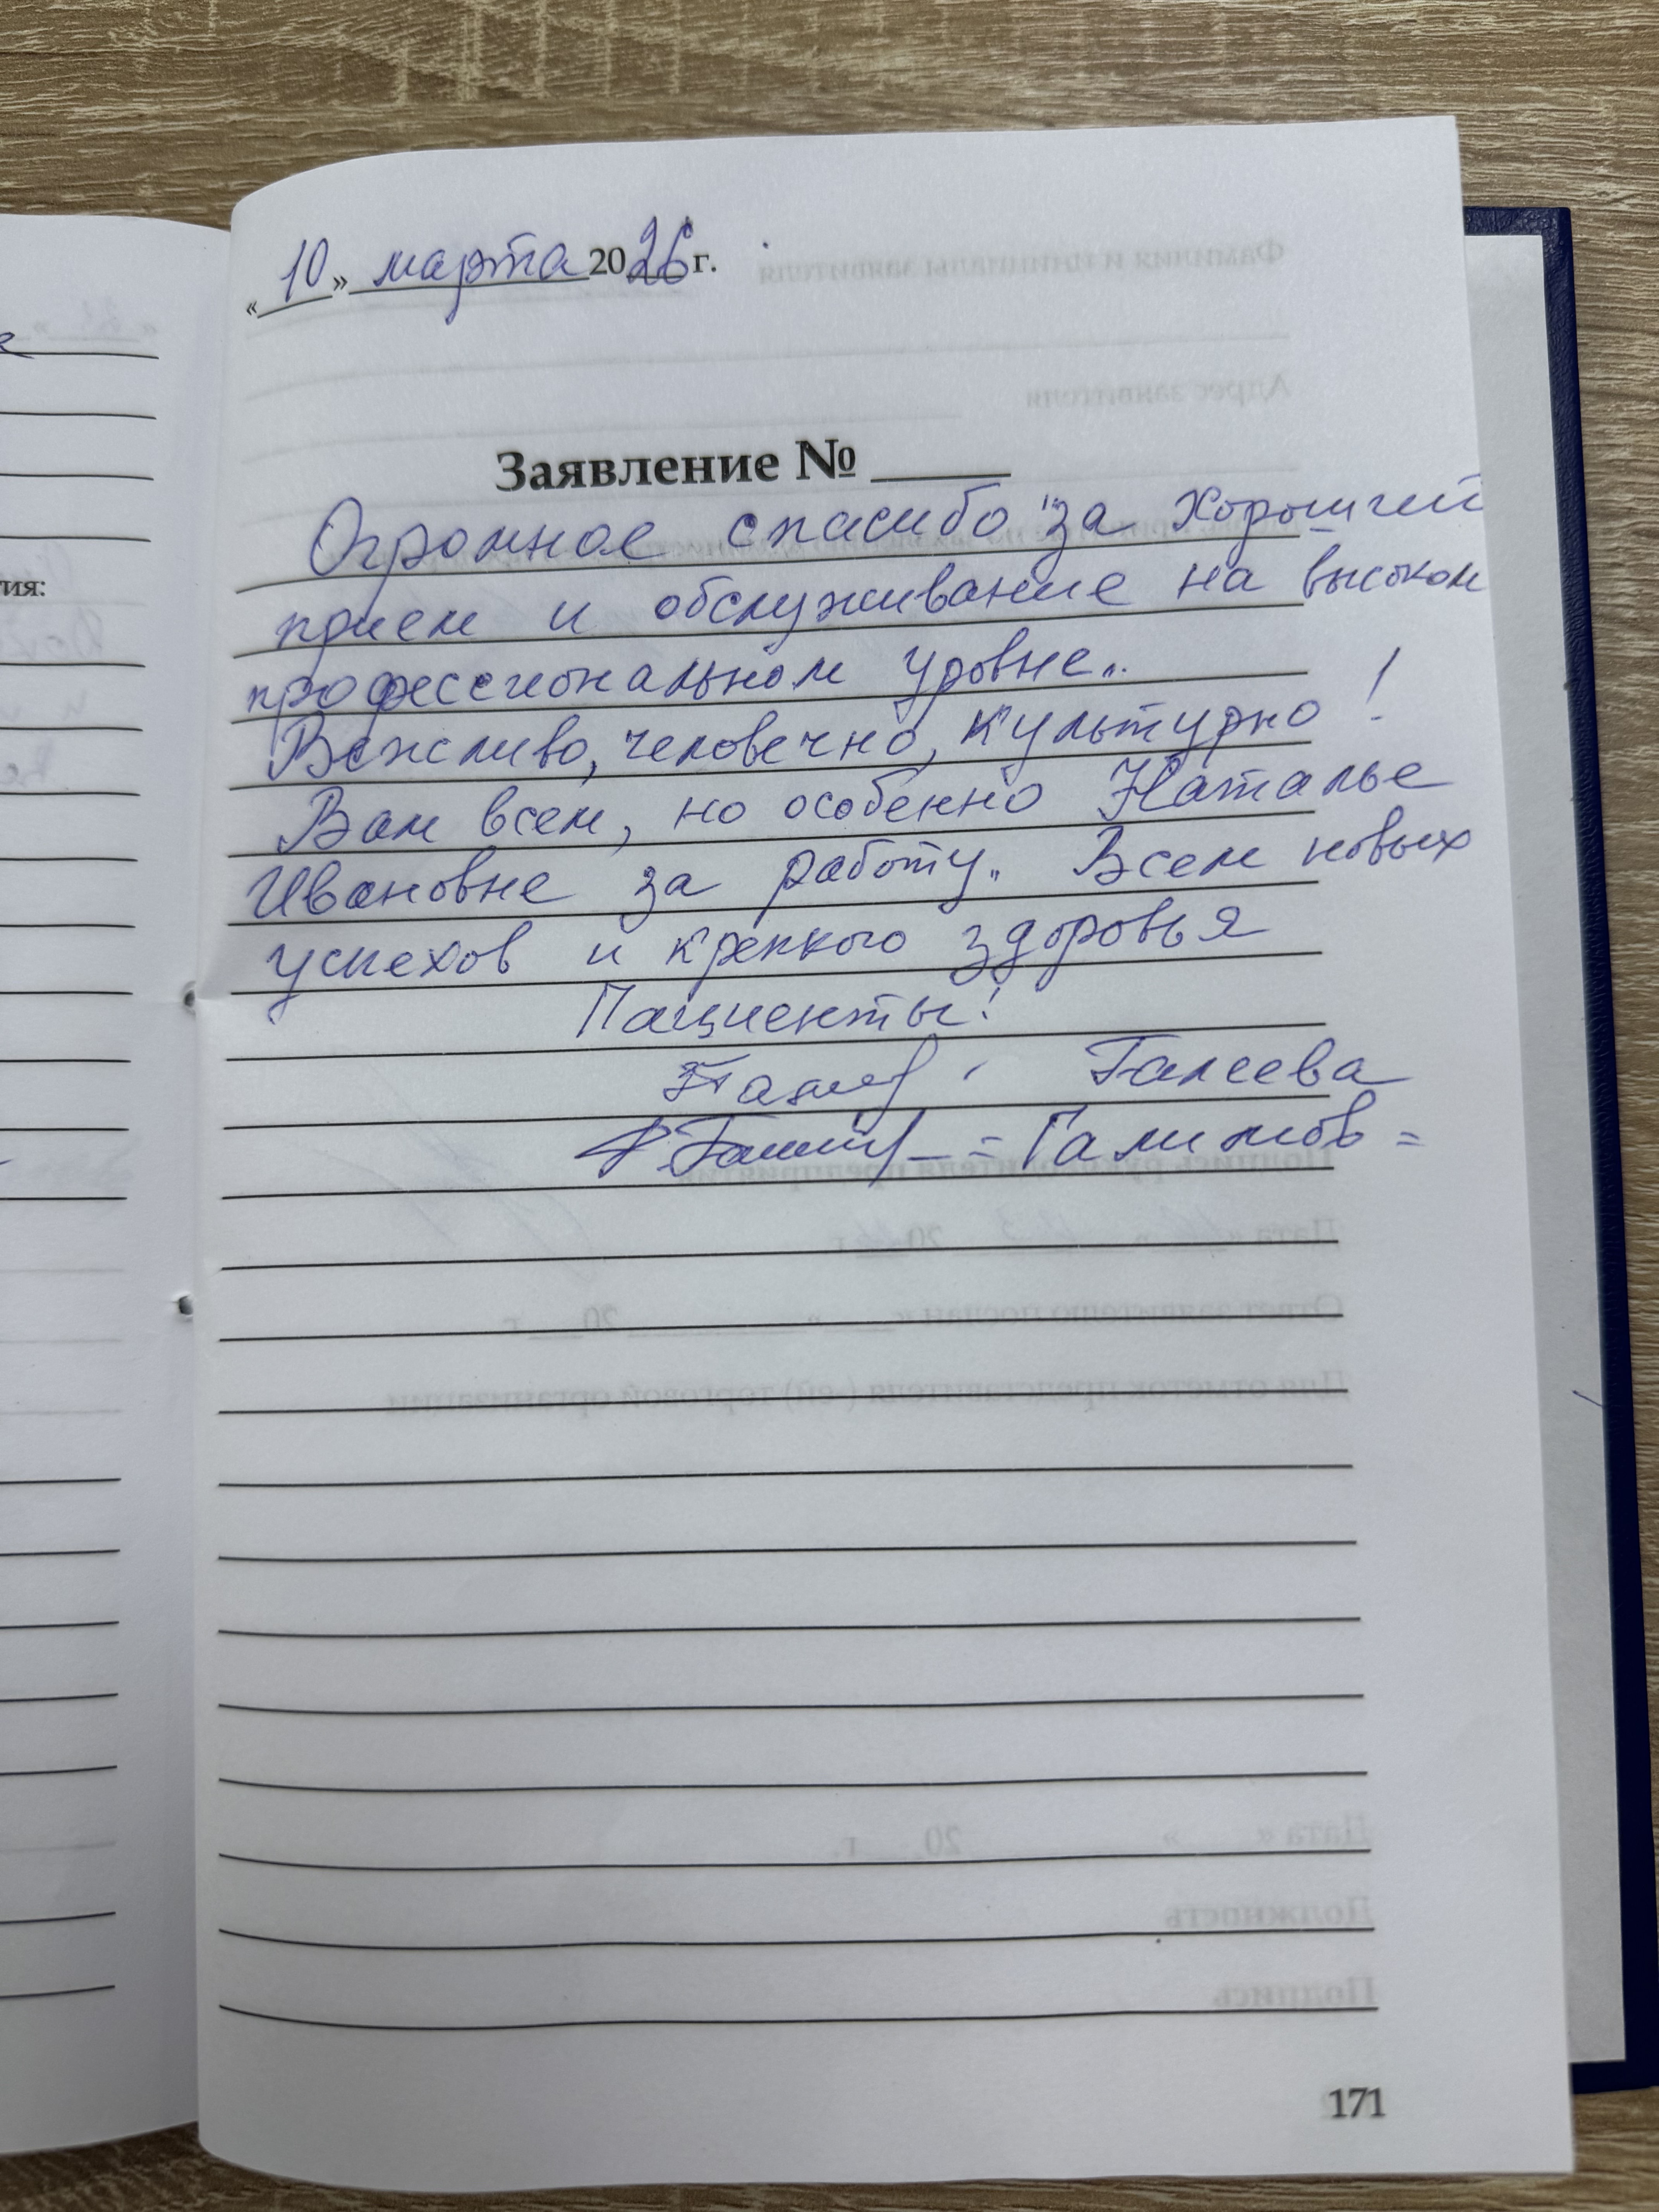 «10» марта 2026 г.
Заявление № ____
Огромное спасибо за хороший
прием и обслуживание на высоком
профессиональном уровне..
Вежливо, человечно, культурно!
Вам всем, но особенно Наталье
Ивановне за работу.. Всем новых
успехов и крепкого здоровья
Пациенты!
Галеева
=Галимов=
тия:
171